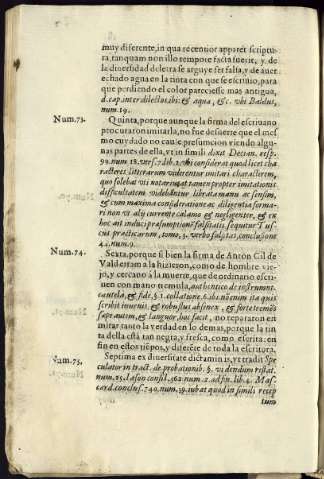 muy diferente, in qua recentior apparet scriptu-
ra, tanquam non illo tempore facta fuerit, y de
la diversidad de letra se arguye ser falsa, y de aver
echado agua en la tinta con que se escrivio, para
que perdiendo el color pareciesse mas antigua,
d. cap. inter dilectos, ibi: & aqua, &c. ubi Baldus,
num. 19.
Num. 73. Quinta, porque aunque la firma del escrivano
procuraron imitarla, no fue de suerte que el mes
mo cuydado no cause presumcion viendo algu-
nas partes de ella, ut in simili dixit Decian. resp.
98. num. 18. vers. 7. lib. 2. ubi considerat quod licet cha
racteres litterarum viderentur imitari characterem,
quo solebat uti notarius, tamen propter imitationis
difficultatem videbantur librata manu ac sensim,
& cum maxima consideratione ac diligentia forma-
ri non ut alij currente calamo & negligenter, & ex
hoc ait induci præsumptionẽ falsitatis, sequitur Tus-
cus practicarum, tomo, 3. verbo falsitas, conclusione
42. num. 9.
Num. 74. Sexta, porque si bien la firma de Anton Gil de
Valdestam la hizieron, como de hombre vie-
jo, y cercano à la muerte, que de ordinario escri-
ven con mano tremula, authentico de instrument.
cautela, & fide, §. 1. collatione 6. ibi: non enim ita quis
scribit iuvenis, & robustus ac senex, & forte tremẽs
sæpe autem, & languor hoc facit, no repararon en
imitar tanto la verdad en lo demas, porque la tin
ta della està tan negra, y fresca, como escrita en
fin en estos tiẽpos, y diferẽte de toda la escritora.
Num. 75. Septima ex diversitate dictaminis, ut tradit Spe
culator in tract. de probationib. §. videndum restat.
num. 25. Iason consil. 162. num. 2. ad fin. lib. 4. Mas
card. conclus. 740. num. 19. iubat quod in simili recep
tum